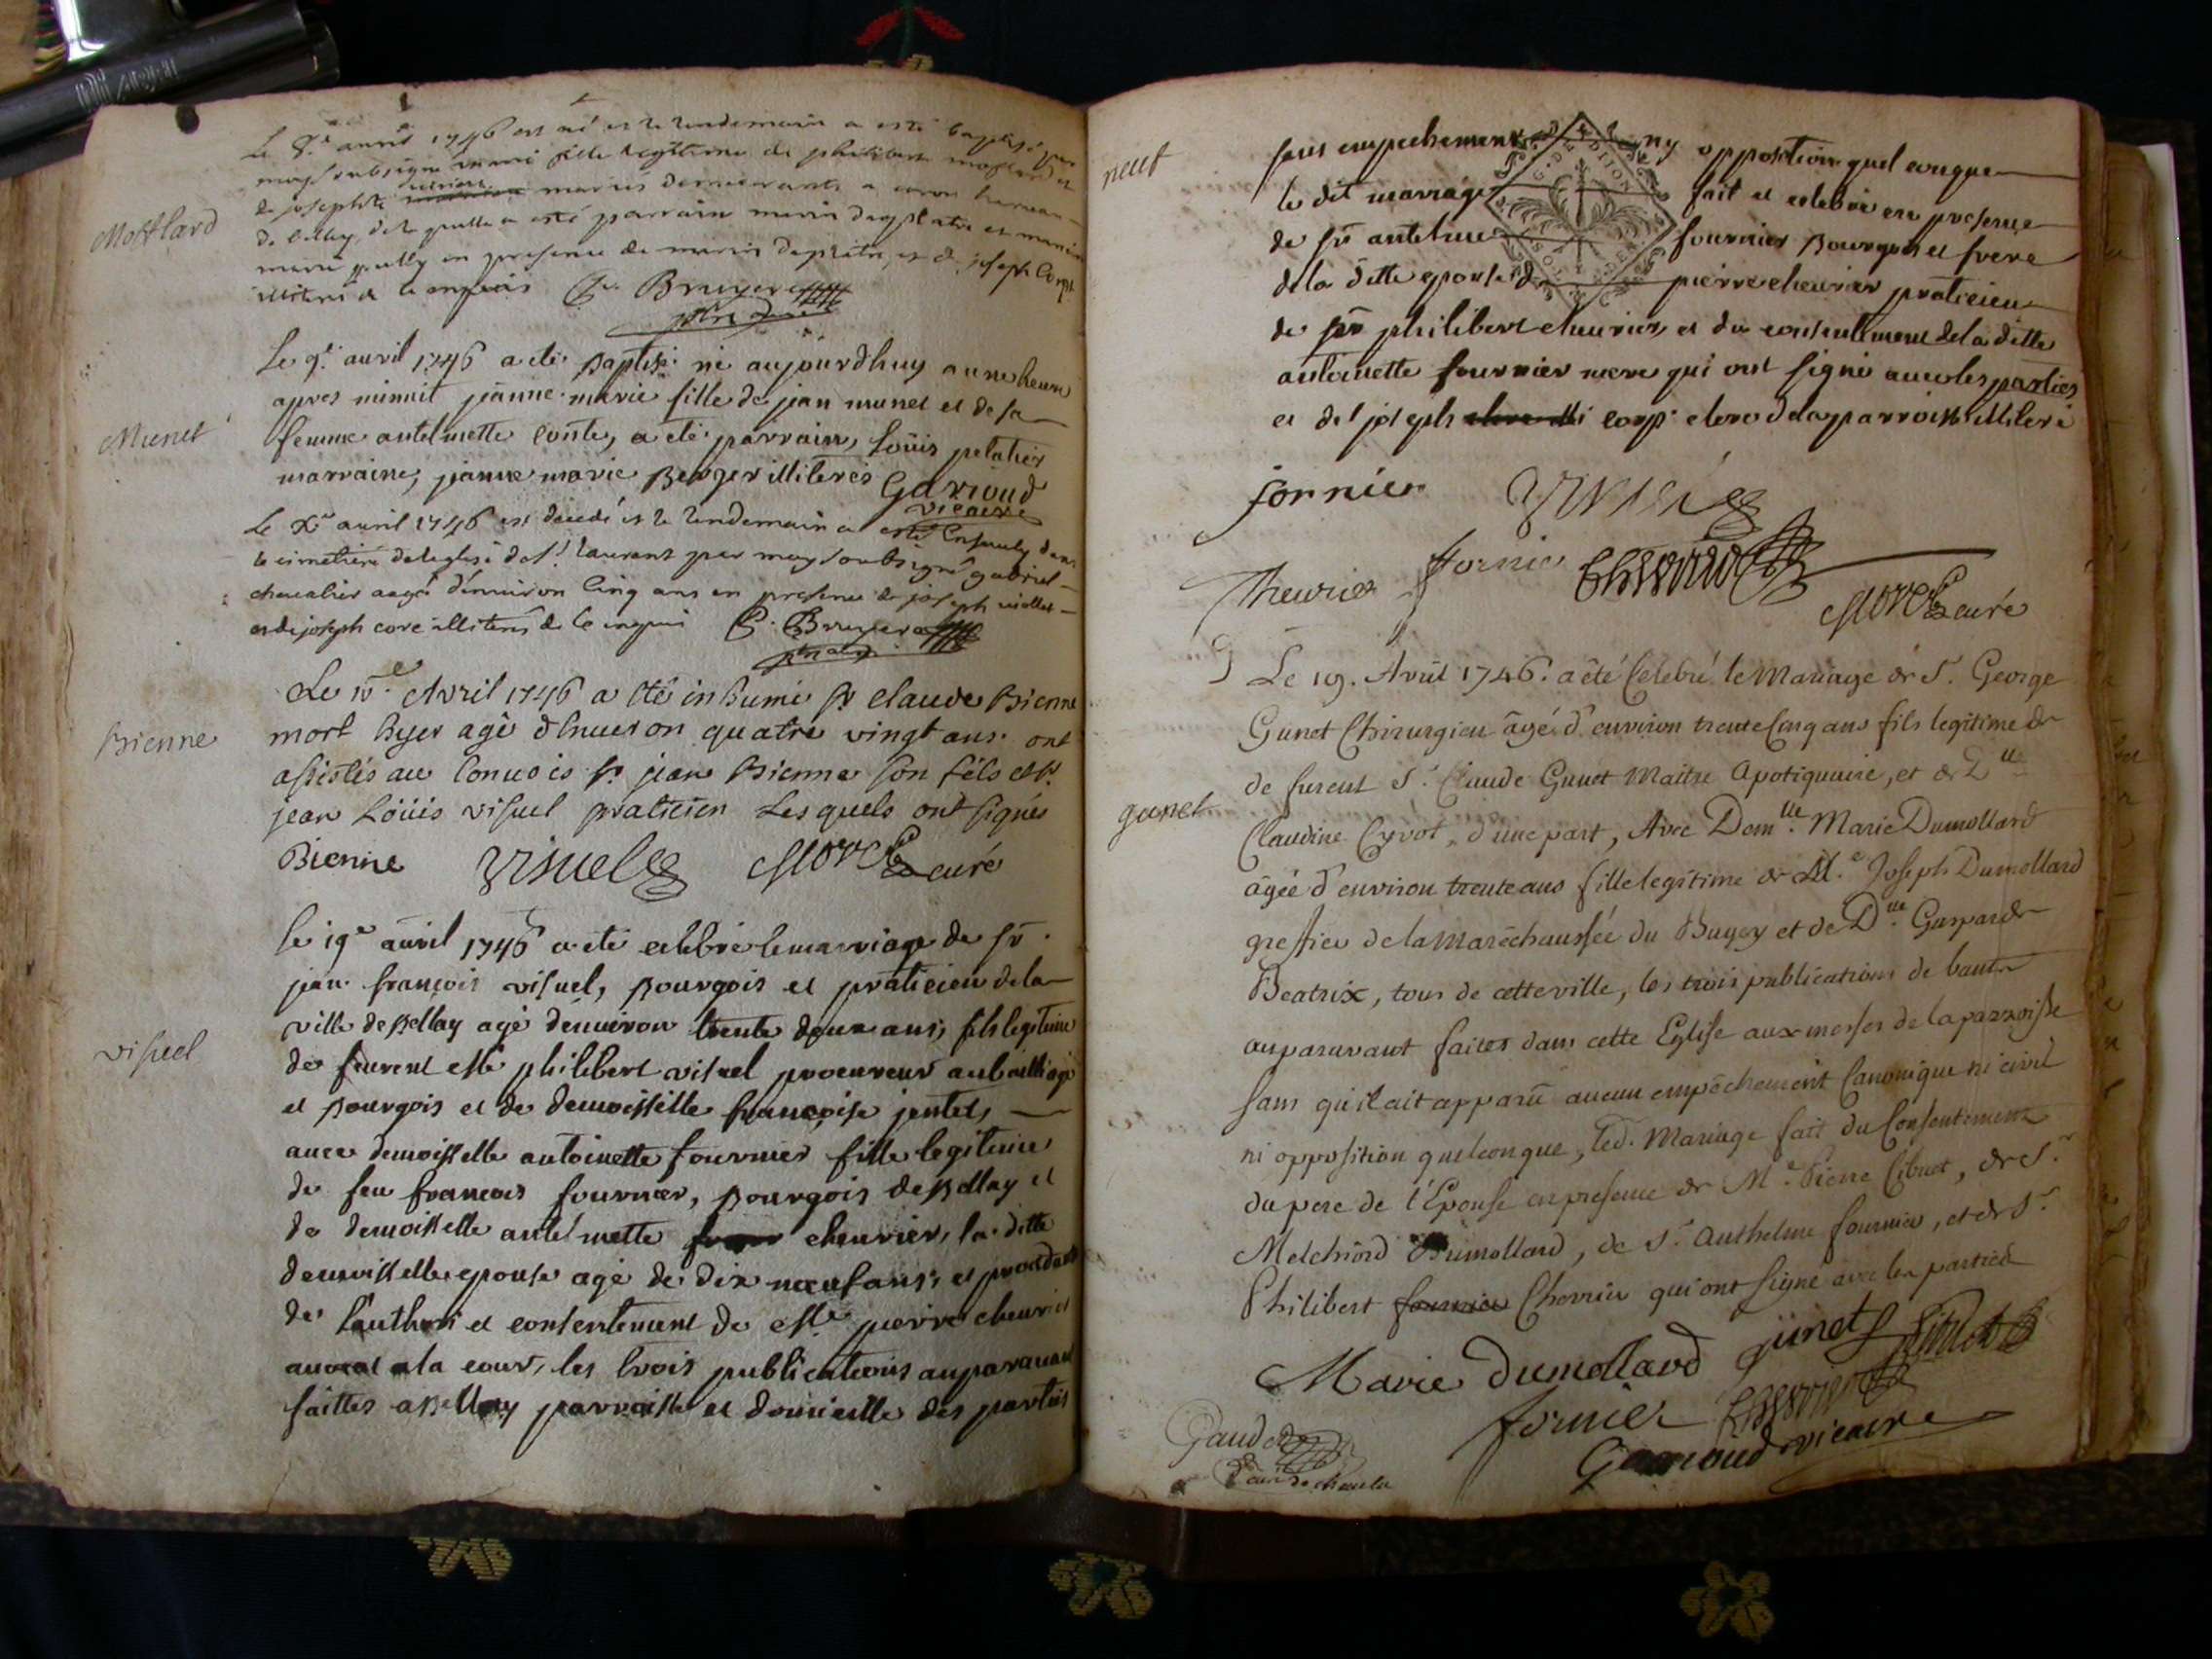 Mottlard
Le 8.e avril 1746 est né et le lendemain a esté baptisé par
moy soubsigné marie fille legitime de philibert mottlard et
de josephte mariés demeurants a
de belley, de la quelle a esté parrain marin duplatre et
marie en presence de marin duplatre, et de joseph Corp
illiterés de ce enquis Bruyer
Munet
Le 9.e avril 1746 a eté Baptisé né aujourdhuy a une heure
apres minuit jeanne marie fille de jean munet et de sa
femme antelmette conte, a eté parrain, Loüis pelatier
marraine, jeanne marie Berger illiterés Garioud
vicaire
Le X.e avril 1746 est decedé et le lendemain a esté ensevely dans
le cimetiere de leglise de s.t laurent par moy soubsigné gabriel
chevalier aagé d'environ cinq ans en presence de joseph
et de joseph core illiterés de ce enquis Bruyer
Bienne
Le 15.e Avril 1746 a eté inhumé Sr claude Bienne
mort hyer agé d'enuiron quatre vingt ans. ont
assistés au Conuois Sr. jean Bienne son fils et Sr.
jean Loüis visuel praticien Lesquels ont signés
Bienne Visuel Morel curé
visuel
le 19e auril 1746 a eté celebré le marriage de Sr.
jean françois visuel, Bourgois et praticien de la
ville de Bellay agé denuiron trente deux ans, fils legitime
de feurent Me philibert visuel procureur au bailliage
et Bourgois et de demoisselle françoise jentet,
auec demoisselle antoinette fournier fille legitime
de feu francois fournier, Bourgois de Bellay et
de demoisselle antelmette cheurier, la ditte
demoisselle epouse agé de dix neuf ans, et procedant
de l'authori et consentement de Me pierre cheurier
auocat a la cour, les trois publications auparauant
faittes a Bellay parroisse et domicille des parties
neuf
sans empechement ny opposition quel conque
le dit marriage fait et celebré en presence
de Sr antelme fournier Bourgois et frere
de la ditte epouse de pierre cheurier praticien
de Sr philibert cheurier, et du consentement de la ditte
antoinette fournier mere qui ont signé auec les parties
et de joseph corp clerc de la parroisse illiteré
fornier Visuel
Cheurier fornier Chevrier
Morel curé
gunet
Le 19. Avril 1746. a été Celebré le Mariage de S.r George
Gunet Chirurgien âgé d'environ trente Cinq ans fils legitime de
de furent S.r Claude Gunet Maitre Apotiquaire, et de D.lle
Claudine Cyvot, d'une part, Avec Dem.lle Marie Dumollard
âgée d'environ trente ans fille legitime de M.e Joseph Dumollard
greffier de la Maréchaussée du Bugey et de D.lle Gaspard
Beatrix, tous de cette ville, les trois publications de bans
auparavant faites dans cette Eglise aux messes de la parroisse
sans qu'il ait apparu aucun empêchement Canonique ni civil
ni opposition quelconque, led. Mariage fait du Consentement
du pere de l'Epouse en presence de M.e Pierre Cibuet, de S.r
Melchiord Dumollard, de S.r Anthelme fournier, et de S.r
Philibert fournier Chevrier qui ont signé avec les parties
Marie Dumollard junet Cibuet
fornier Chevrier
Garioud vicaire